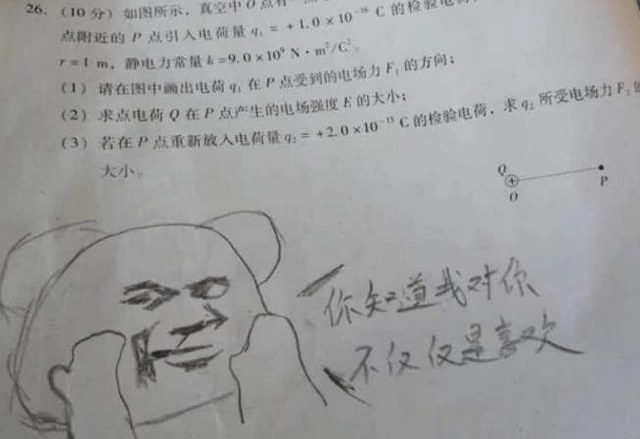 26. (10分) 如图所示, 真空中O点有
点附近的P点引入电荷量q₁ = +1.0×10⁻¹⁶ C的检验电荷
r=1 m, 静电力常量k=9.0×10⁹ N·m²/C²。
(1) 请在图中画出电荷q₁在P点受到的电场力F₁的方向;
(2) 求点电荷Q在P点产生的电场强度E的大小;
(3) 若在P点重新放入电荷量q₂=+2.0×10⁻¹⁵ C的检验电荷, 求q₂所受电场力F₂的
大小。
Q
O
P
你知道我对你
不仅仅是喜欢